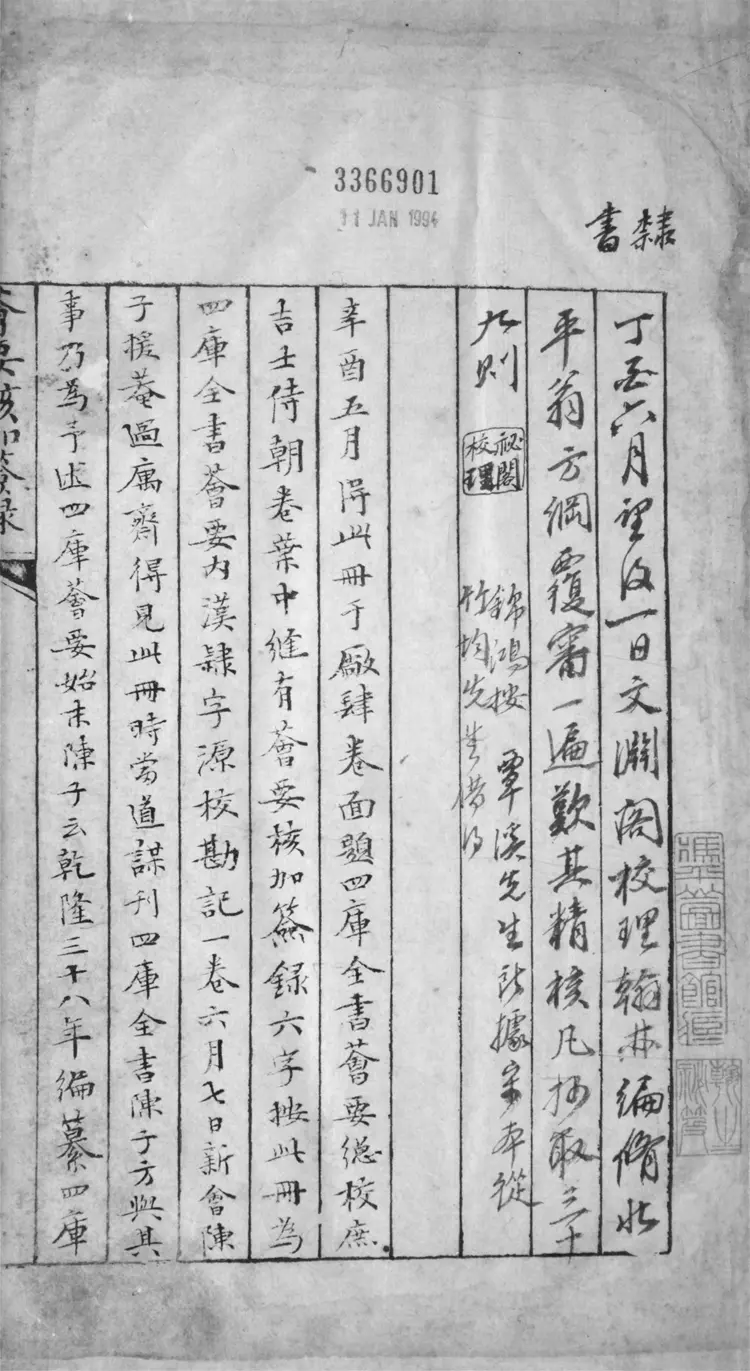 3366901
11 JAN 1994
隸書
丁酉六月望後一日文淵閣校理翰林編脩北
平翁方綱覆審一遍歎其精核凡抄取三十
九則
祕閣
校理
錦鴻按 覃溪先生所據宋本從
竹均先生借得
辛酉五月得此冊于廠肆卷面題四庫全書薈要總校庶
吉士侍朝卷葉中縫有薈要核加簽錄六字按此冊為
四庫全書薈要內漢隸字源校勘記一卷六月七日新會陳
子援菴過寓齋得見此冊時當道謀刊四庫全書陳子方與其
事乃為予述四庫薈要始末陳子云乾隆三十八年編纂四庫
薈要核加簽錄